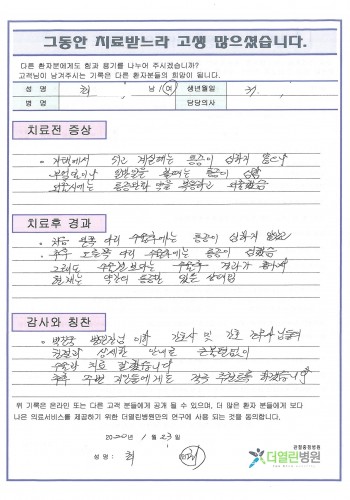 그동안 치료받느라 고생 많으셨습니다.
다른 환자분에게도 힘과 용기를 나누어 주시겠습니까?
고객님이 남겨주시는 기록은 다른 환자분들의 희망이 됩니다.
성 명 최 남 / 여 생년월일
병 명 담당의사
치료전 증상
쉬고 계실때는 통증이 심하지 않으나
통증이 심함
외출시에는 통증완화 약을 복용하고 외출했음
치료후 경과
다리 수술후에는 통증이 심하지 않았고
다리 수술후에는 통증이 심했음
그래도 수술전보다는 수술후 경과가
현재는 약간의 통증만 있는 상태임
감사와 칭찬
병원장님 이하 간호사 및 간호 조무사님들의
친절과 상세한 안내로 큰 불편없이
수술과 치료 잘 했습니다
추후 주변 지인들에게는 적극 추천토록 하겠습니다
위 기록은 온라인 또는 다른 고객 분들에게 공개 될 수 있으며, 더 많은 환자 분들에게 보다
나은 의료서비스를 제공하기 위한 더열린병원만의 연구에 사용 되는 것을 동의합니다.
2020년 1 월 23일
성 명 : 최
관절중점병원
더열린병원